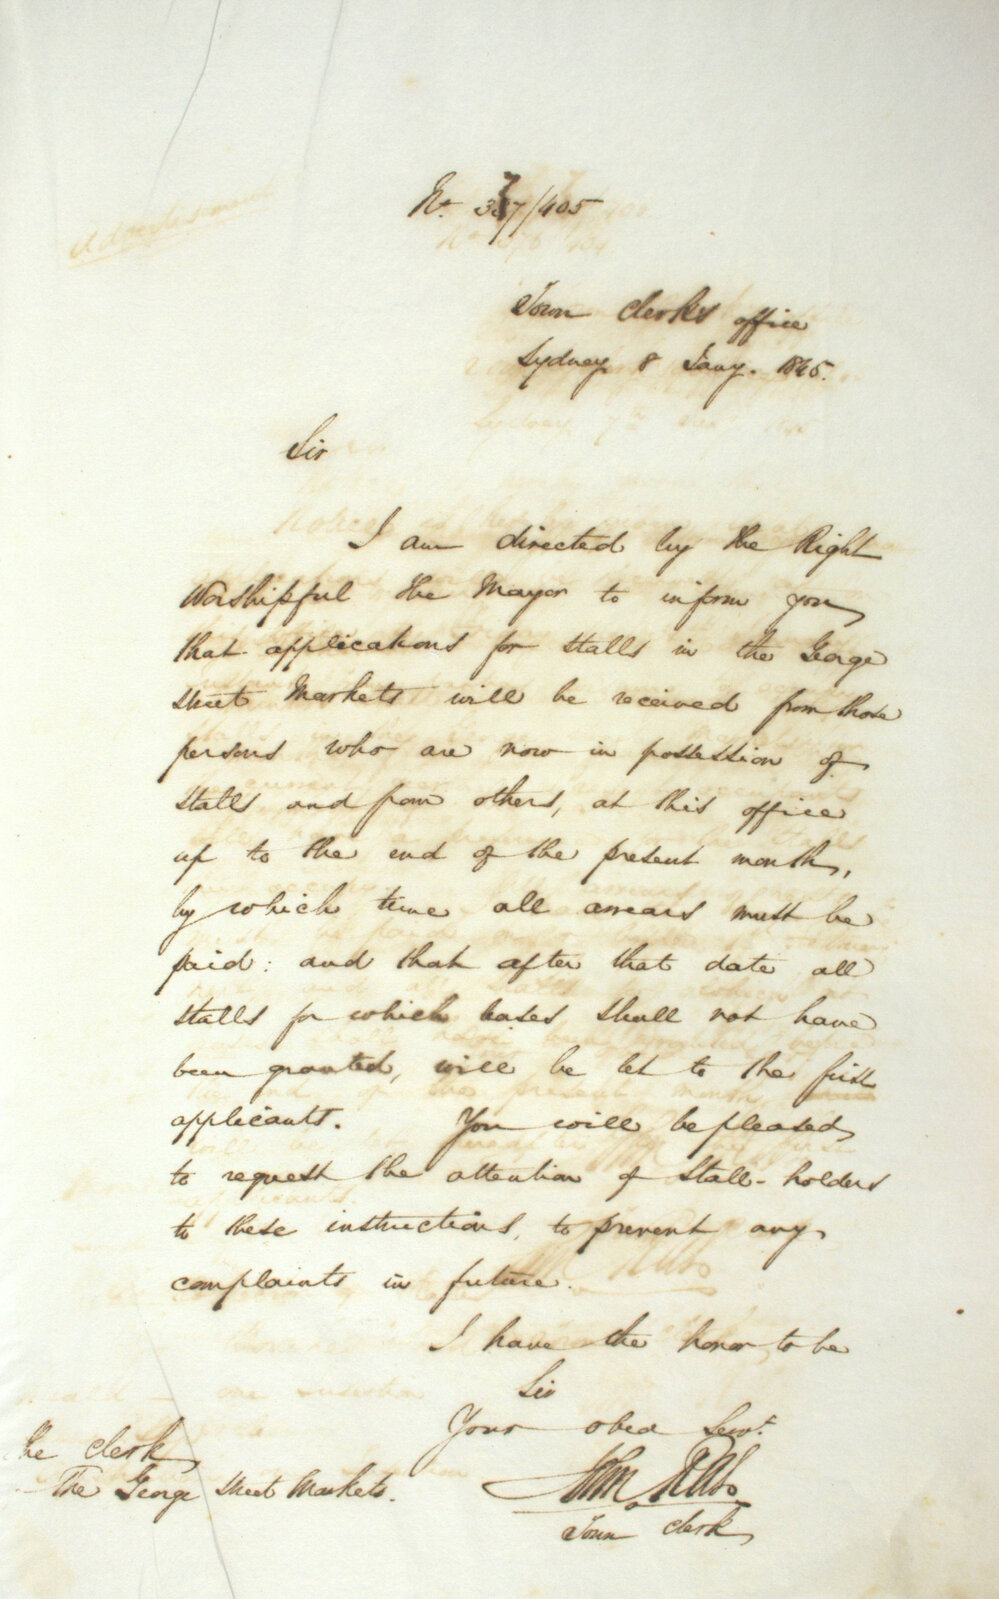 No. 377/405
Town Clerk's office
Sydney 8 Jany. 1845.
Sir
I am directed by the Right
Worshipful the Mayor to inform you
that applications for stalls in the George
street Markets will be received from those
persons who are now in possession of
stalls and from others, at this office
up to the end of the present month,
by which time all arrears must be
paid: and that after that date all
stalls for which leases shall not have
been granted, will be let to the first
applicants. You will be pleased
to request the attention of Stall-holders
to these instructions, to prevent any
complaints in future.
I have the honor to be
Sir
Your obed Servt.
John Rae
Town Clerk
The Clerk
The George Street Markets.